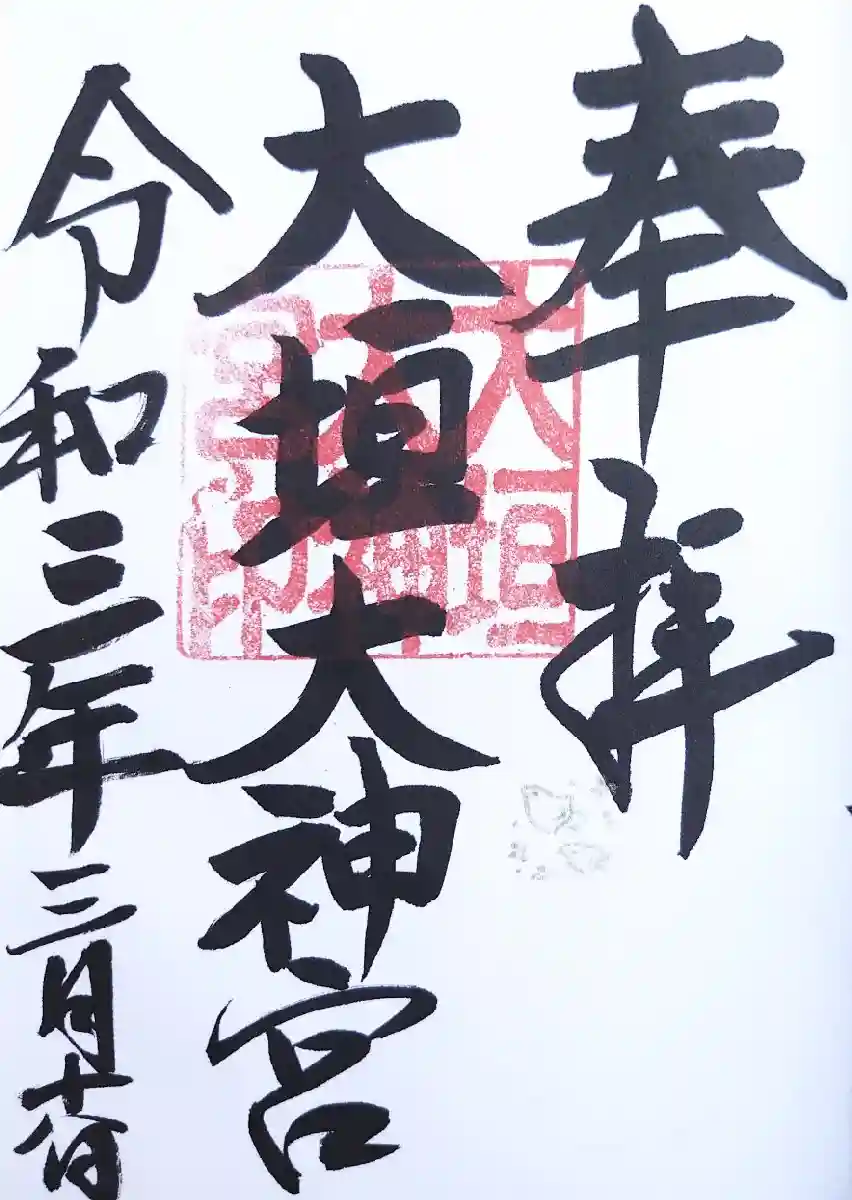 奉拝
大垣大神宮
令和三年三月十八日
大垣大神宮印